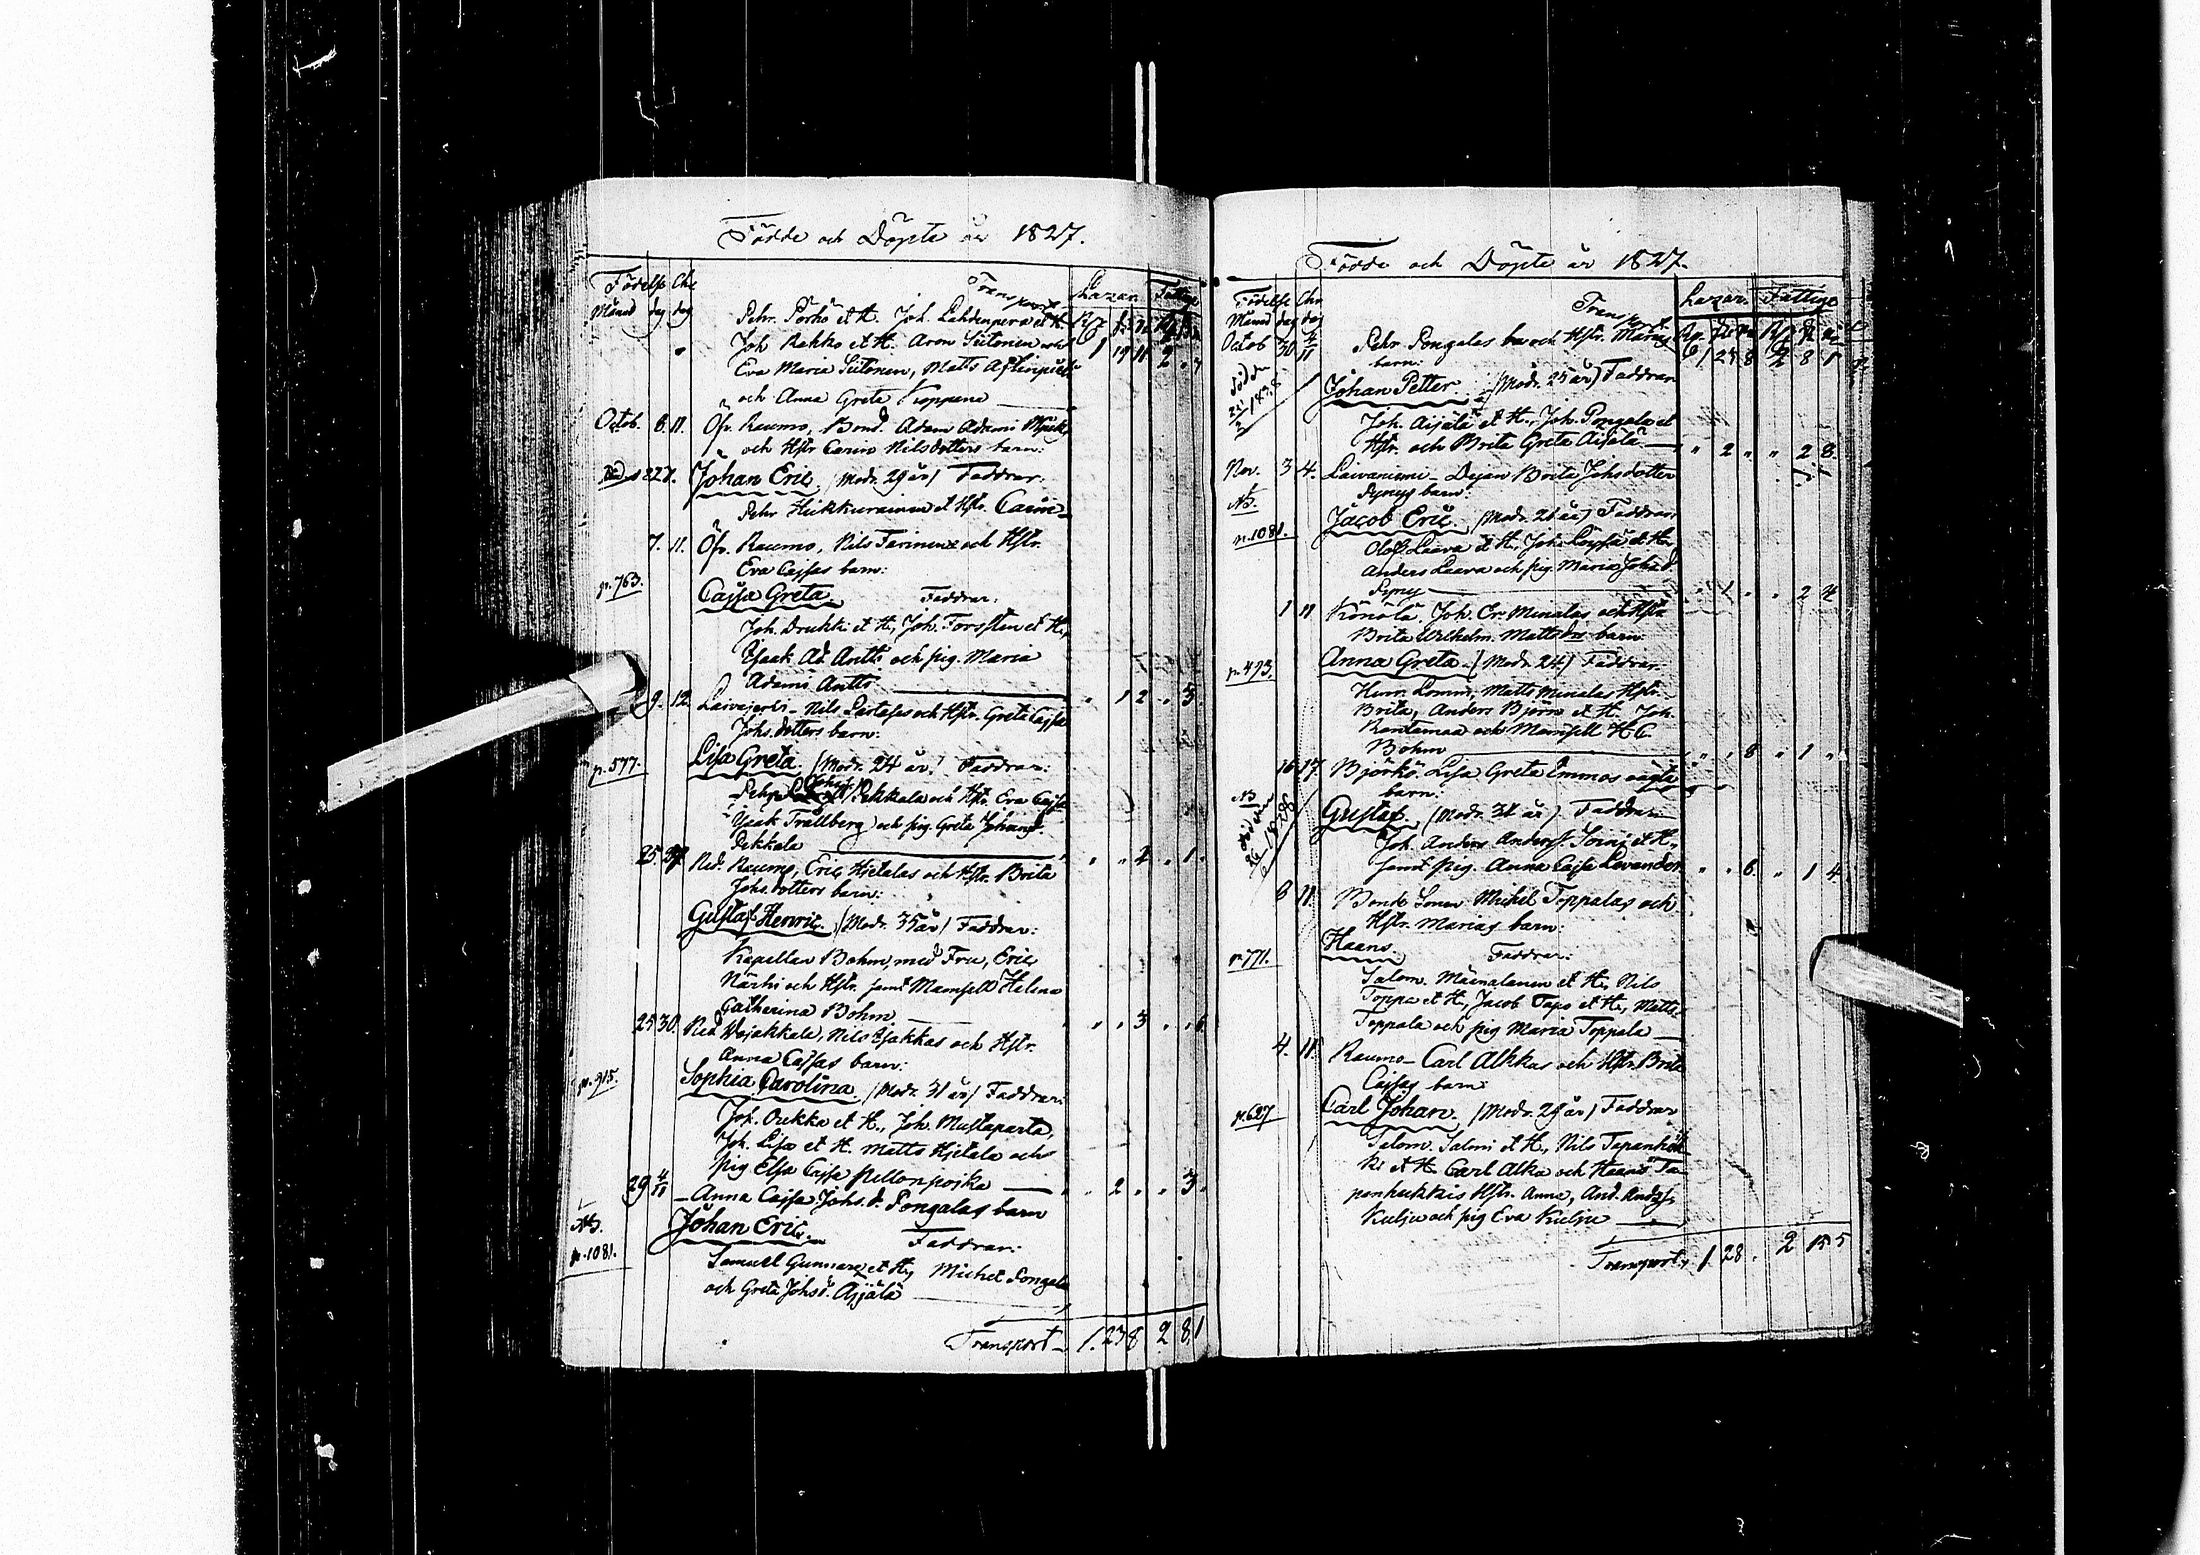 Födde och Döpte år 1827.
Födelse Chr.
Månad dag dag
Transport
Lazar. Fattige
Pehr Pörhö et H. Joh. Lahdenperä et H.
Joh Rahko et H. Aron Siitonen och 1 19 11 2 . 7
Eva Maria Siitonen, Matts
och Anna Greta Koppana
Octob. 6. 11. Öfv. Raumo, Bond. Adam Adami
och Hstr Carin Nilsdotters barn:
Johan Eric. (Modr. 29 år) Faddrar:
Pehr Hiekkurainen et Hstr. Carin
7. 11. Öfv. Raumo, Nils Tarinens och Hstr.
Eva Cajsas barn:
p. 763.
Cajsa Greta. Faddrar:
Joh. Drukki et H., Joh. Forssten et H.,
Isaak Ad. Antti och pig. Maria
Adami Antti " 1 2 " 3
9. 12. Laivajerfi - Nils och Hstr. Greta Cajsa
Johs.dotters barn:
p. 577.
Lisa Greta. (Modr. 24 år) Faddrar:
Pekkala och Hstr. Eva Cajsa
Isaak Trällberg och pig. Greta Johansd.
Pekkala
25. Ned. Raumo, Eric Hietalas och Hstr. Brita
Johs.dotters barn:
Gustaf Henric. (Modr. 35 år) Faddrar:
Kapellan Bohm, med Fru, Eric
Närhi och Hstr. samt Mamsell Helena
Catherina Bohm " " 3 " " 6
25 30. Ned. Wojakkala, Nils Isakkas och Hstr.
Anna Cajsas barn:
p. 915.
Sophia Carolina. (Modr. 31 år) Faddrar:
Joh. Orekka et H., Joh. Mustaparta,
Joh. Lisa et H. Matts Hietala och
pig Elsa Cajsa Pellonpoika " " 2 " " 3
29 4/11 - Anna Cajsa Johs.d. Pongalas barn
NB.
p. 1081.
Johan Eric. Faddrar:
Samuel Gunnari et H., Michel Pongala
och Greta Johsd. Äijälä
Transport - 1. 23 8 2 8 1
Födde och Döpte år 1827.
Födelse Chr.
Månad dag dag
Transport
Lazar. Fattige
Octob 30 4/11 Pehr Pongalas barn och Hstr. Marias 1 23 8 2 8 1
barn:
Johan Petter. (Modr. 25 år) Faddrar
Joh. Äijälä et H., Joh. Pongala et
Hstr. och Brita Greta Äijälä " 2 " " 2 8.
Nov. 3 4. Laivaniemi - Pigan Brita Johsdotter
Pynys barn:
NB.
p. 1081.
Jacob Eric. (Modr. 21 år) Faddrar
Olof Laava et H., Joh. et H.
Anders Laava och pig. Maria Johsd.
Pyny " 1 " " 2 4
1 11 Könölä. Joh. Er. Minalas och Hstr
Brita Wilhelm. Mattsdrs barn:
p. 493.
Anna Greta. (Modr. 24) Faddrar:
Henr. Lommi, Matts Minalas Hstr.
Brita, Anders Björn et H. Joh.
Rantamaa och Mamsell H C
Bohm " " 8 " 1 "
16 17. Björkö. Lisa Greta Emmos oägta
barn:
NB
Gustaf. (Modr. 31 år) Faddrar:
Joh. Anders Anderss. et H.,
samt Pig. Anna Cajsa Levander " " 6. " 1 4
8 11 Bonde Sonen Michel Toppalas och
Hstr. Marias barn:
p. 771.
Haans. Faddrar:
Salom. Mäenalanen et H., Nils
Toppa et H., Jacob Tapo et H., Matts
Toppala och pig Maria Toppala
4. 11. Raumo - Carl Alkkas och Hstr. Brita
Cajsas barn:
p. 627
Carl Johan. (Modr. 29 år) Faddrar
Salom. Salmi et H., Nils
ki et H. Carl Alka och Haans Ta-
panhukkis Hstr. Anna, And. Andrs.
Kulju och pig Eva Kulju
Transport - 1 28 . 2 15 5